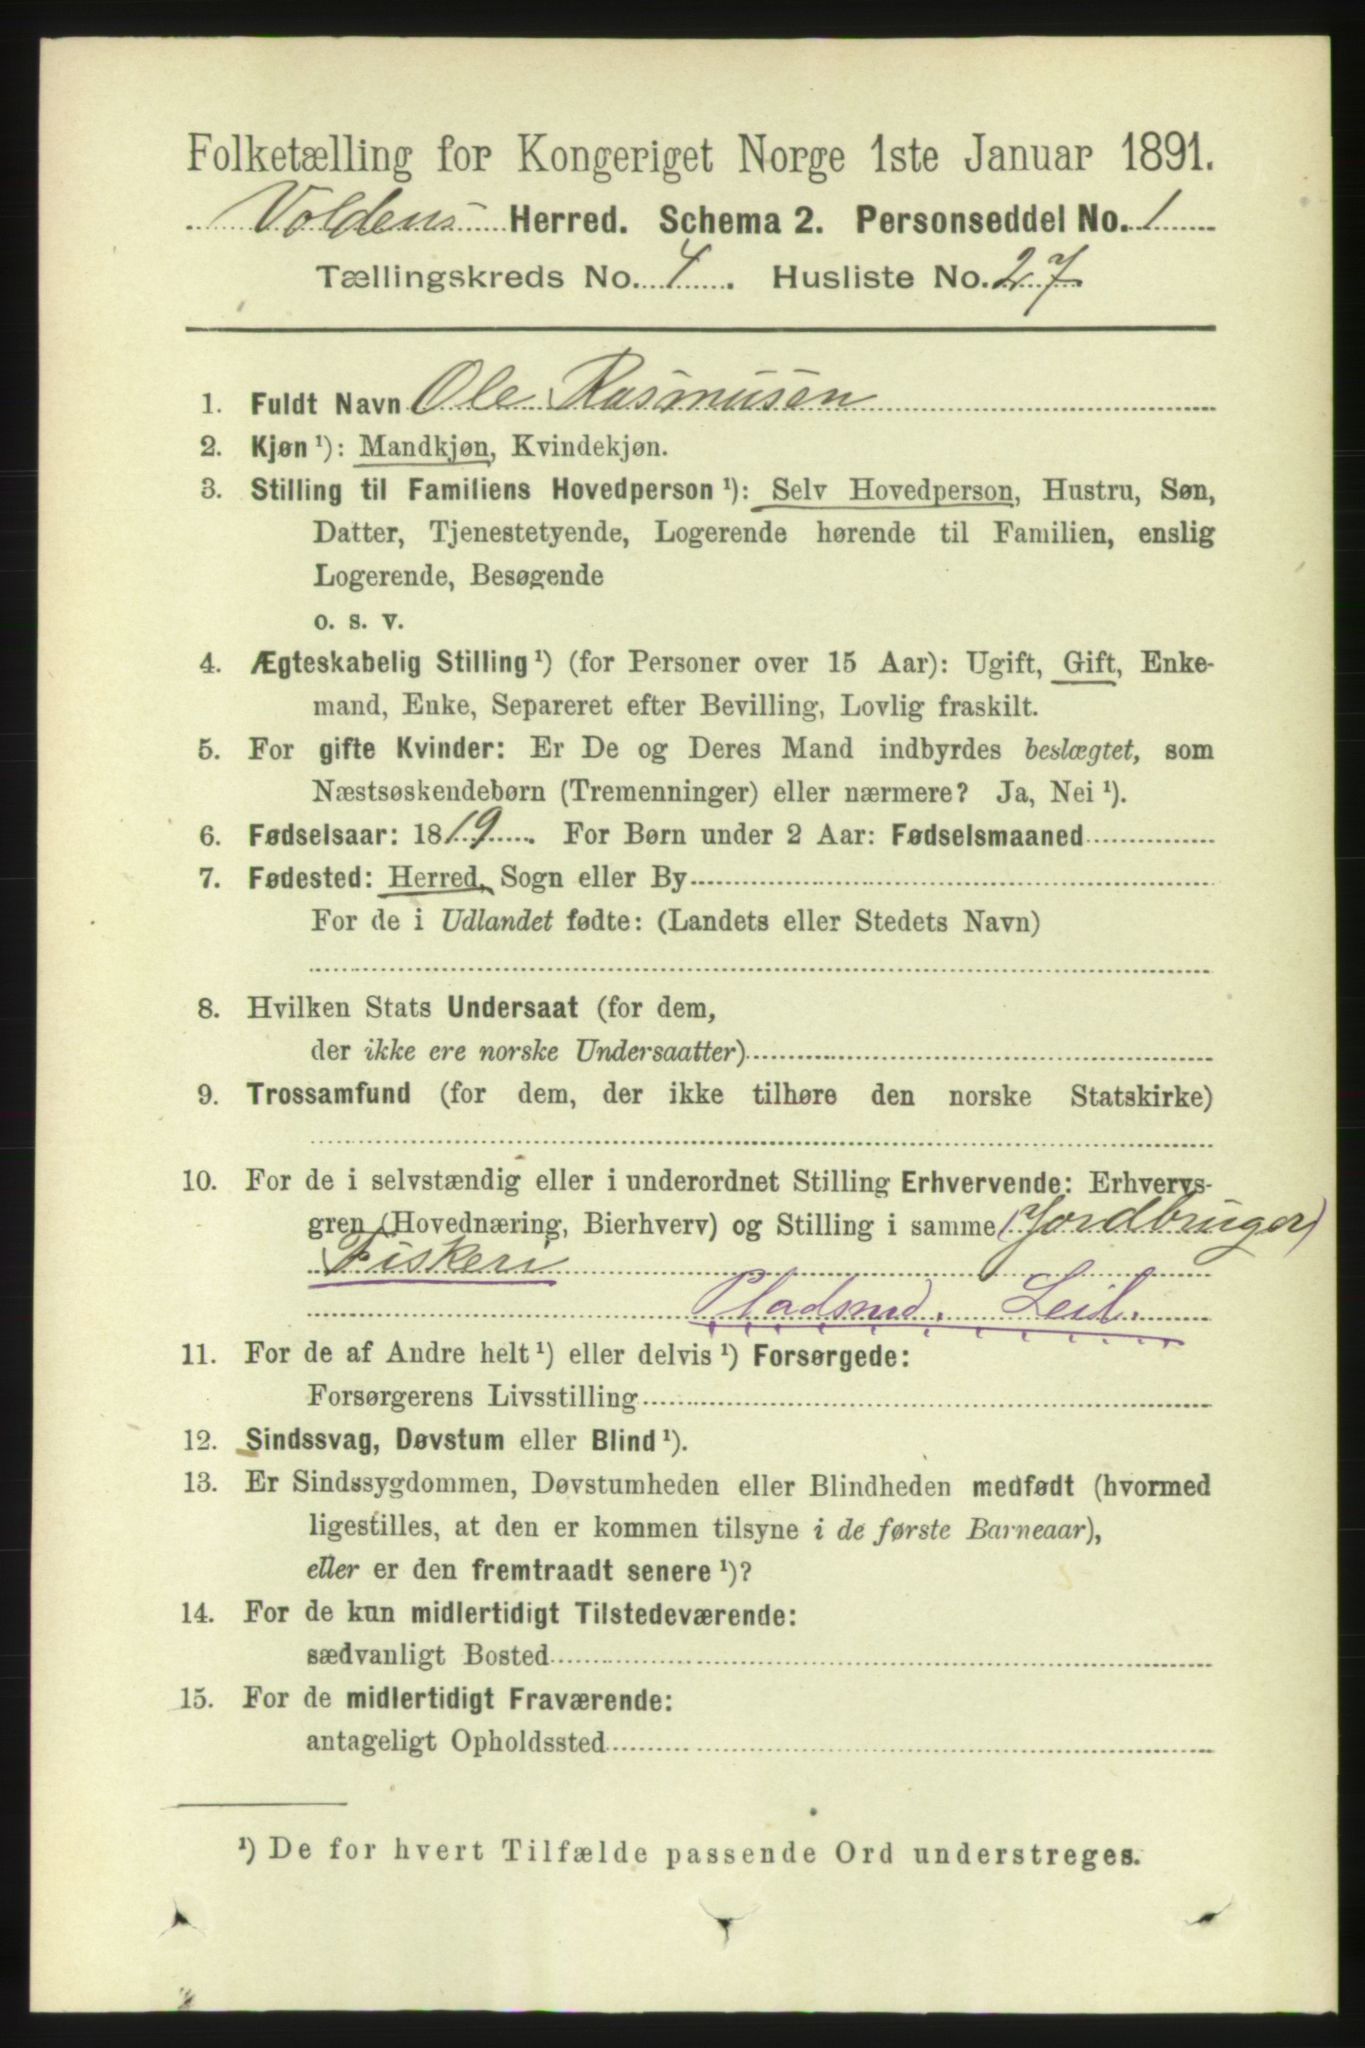 Folketælling for Kongeriget Norge 1ste Januar 1891.
Voldens Herred. Schema 2. Personseddel No. 1
Tællingskreds No. 4. Husliste No. 27
1. Fuldt Navn Ole Rasmusen
2. Kjøn ¹): Mandkjøn, Kvindekjøn.
3. Stilling til Familiens Hovedperson ¹): Selv Hovedperson, Hustru, Søn,
Datter, Tjenestetyende, Logerende hørende til Familien, enslig
Logerende, Besøgende
o. s. v.
4. Ægteskabelig Stilling ¹) (for Personer over 15 Aar): Ugift, Gift, Enke-
mand, Enke, Separeret efter Bevilling, Lovlig fraskilt.
5. For gifte Kvinder: Er De og Deres Mand indbyrdes beslægtet, som
Næstsøskendebørn (Tremenninger) eller nærmere? Ja, Nei ¹).
6. Fødselsaar: 1819. For Børn under 2 Aar: Fødselsmaaned
7. Fødested: Herred, Sogn eller By
For de i Udlandet fødte: (Landets eller Stedets Navn)
8. Hvilken Stats Undersaat (for dem,
der ikke ere norske Undersaatter)
9. Trossamfund (for dem, der ikke tilhøre den norske Statskirke)
10. For de i selvstændig eller i underordnet Stilling Erhvervende: Erhvervs-
gren (Hovednæring, Bierhverv) og Stilling i samme (Jordbruger)
Fiskeri
Pladsmd. Leil.
11. For de af Andre helt ¹) eller delvis ¹) Forsørgede:
Forsørgerens Livsstilling
12. Sindssvag, Døvstum eller Blind ¹).
13. Er Sindssygdommen, Døvstumheden eller Blindheden medfødt (hvormed
ligestilles, at den er kommen tilsyne i de første Barneaar),
eller er den fremtraadt senere ¹)?
14. For de kun midlertidigt Tilstedeværende:
sædvanligt Bosted
15. For de midlertidigt Fraværende:
antageligt Opholdssted
¹) De for hvert Tilfælde passende Ord understreges.